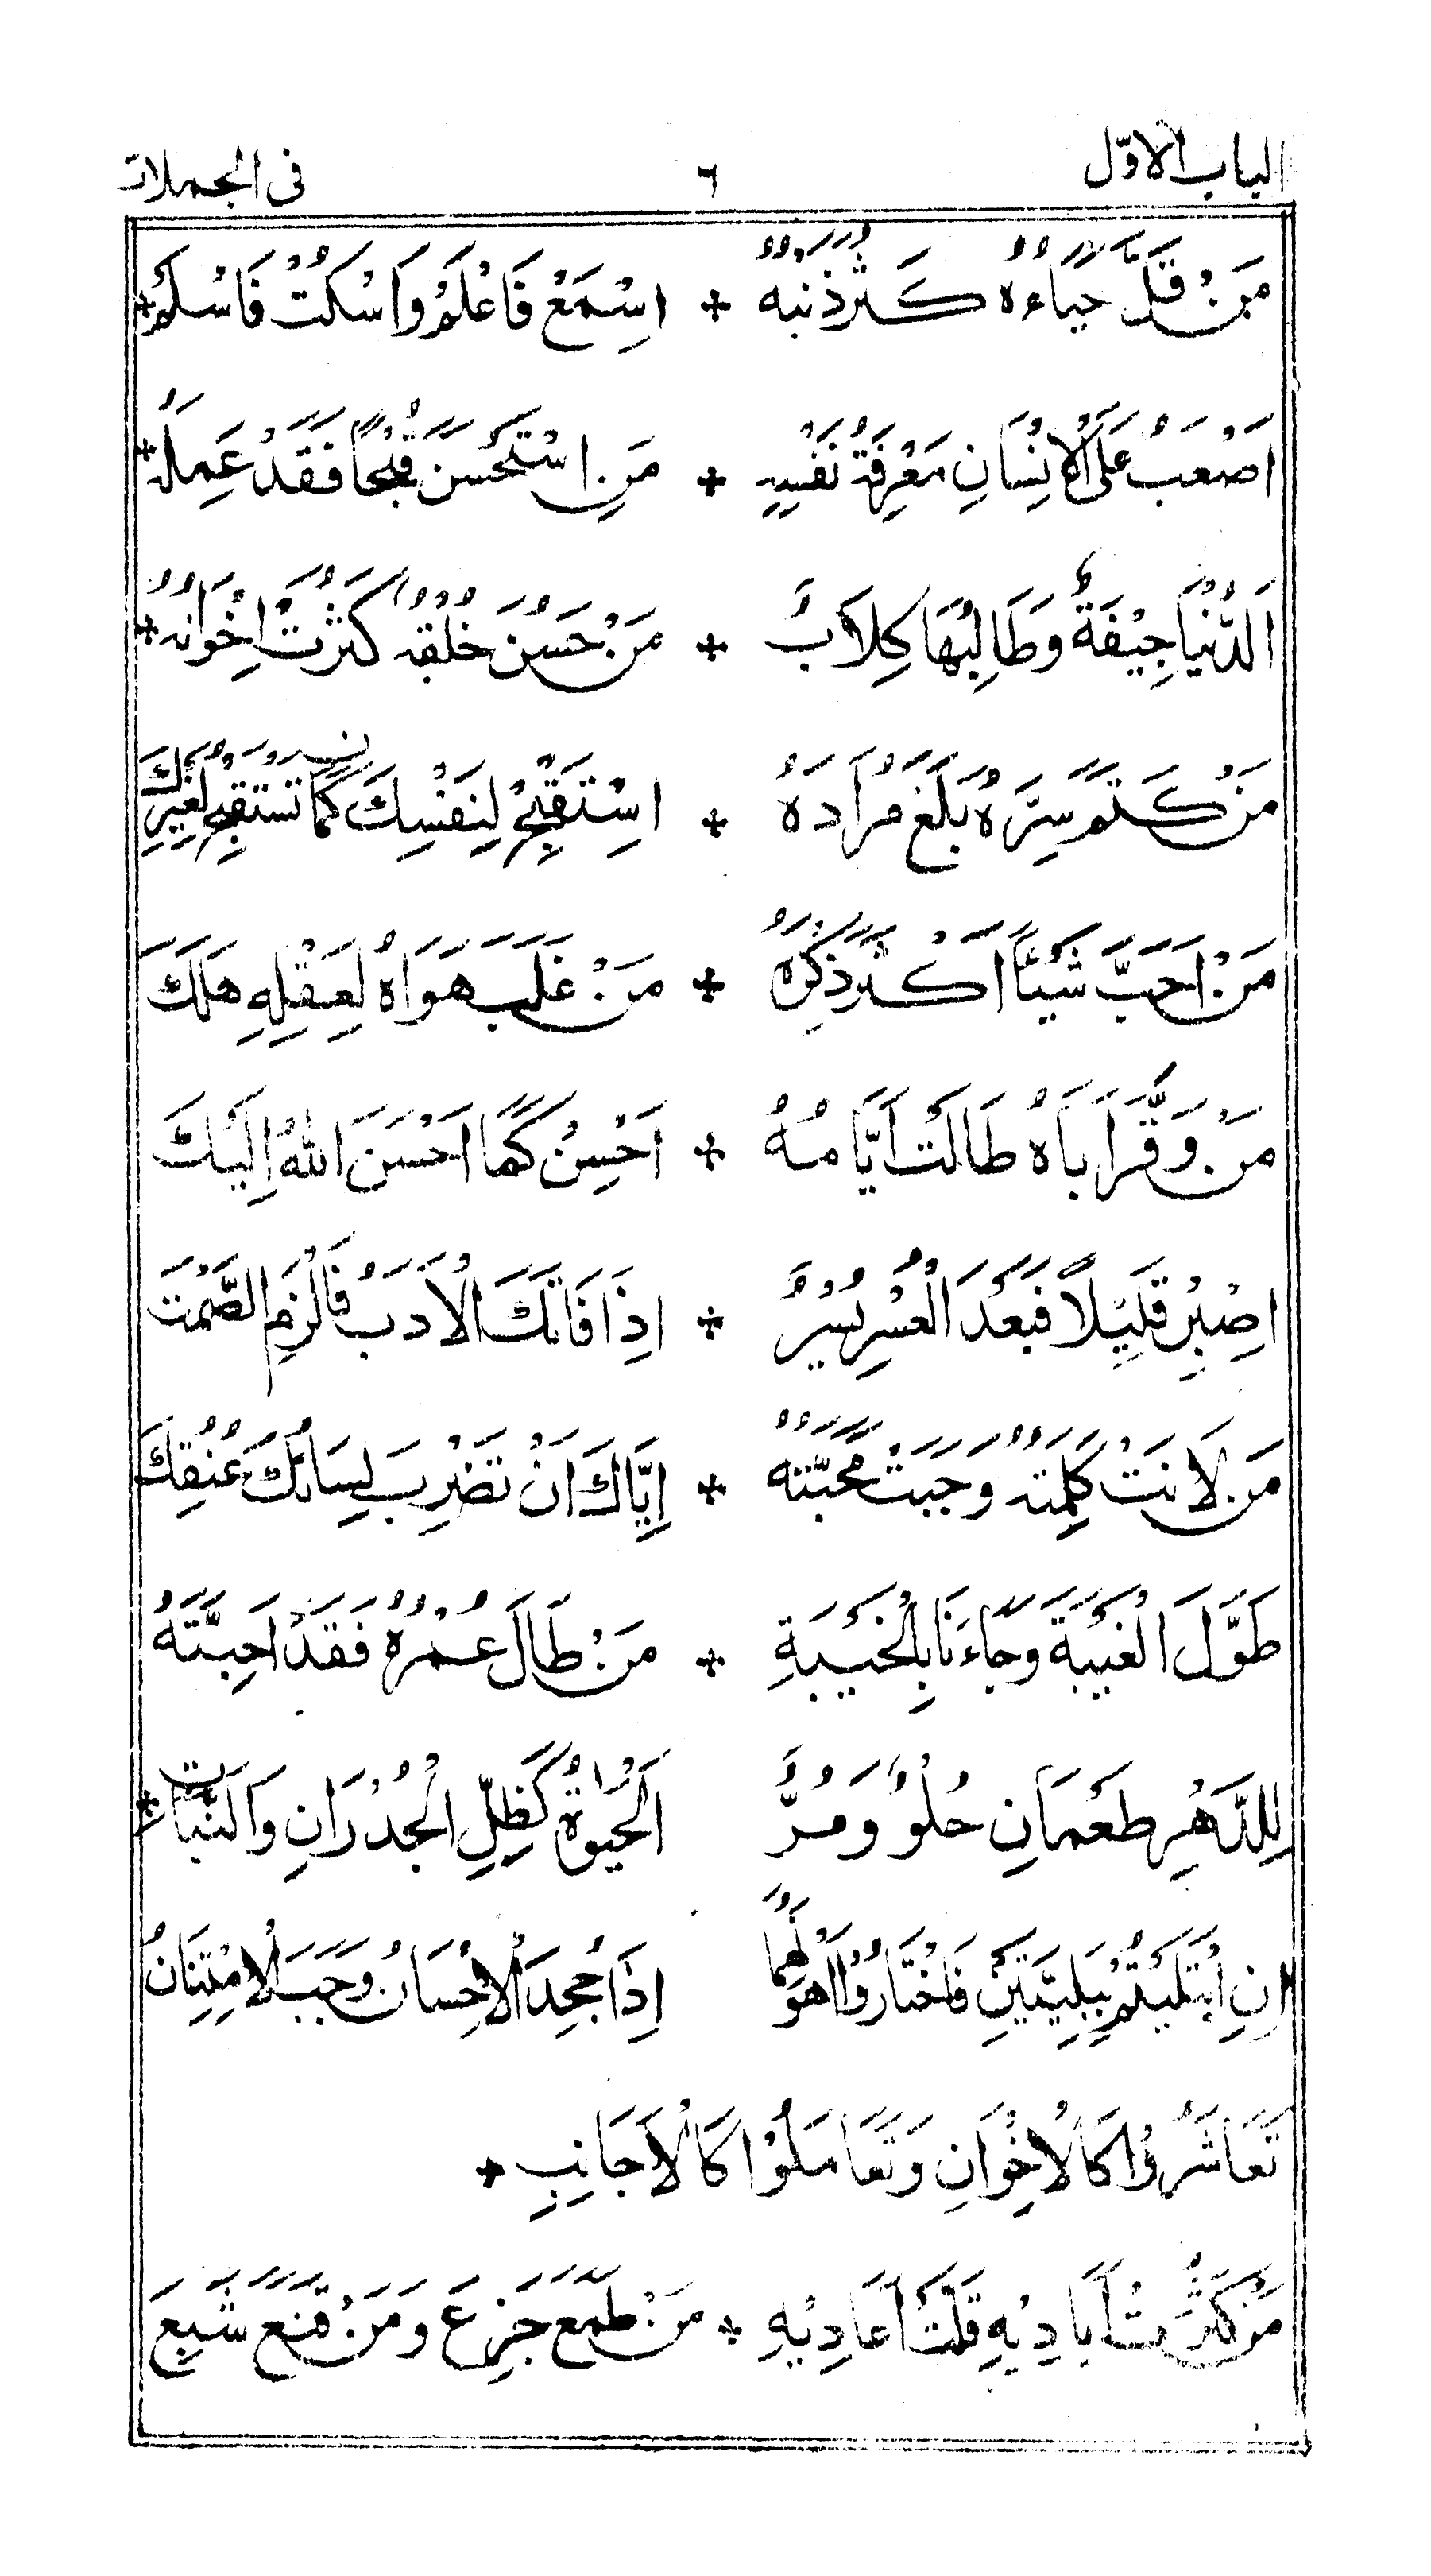 الباب الاوّل ٦ فى الجملات
مَنْ قَلَّ حَيَاءُهُ كَثُرَ ذَنْبُهُ + اِسْمَعْ فَاعْلَمْ وَاسْكُتْ فَاسْلَمْ +
اَصْعَبُ عَلَى الْاِنْسَانِ مَعْرِفَةُ نَفْسِهٖ + مَنِ اسْتَحْسَنَ قَبِيْحًا فَقَدْ عَمِلَهُ +
اَلدُّنْيَا جِيْفَةٌ وَطَالِبُهَا كِلَابٌ + مَنْ حَسُنَ خُلُقُهُ كَثُرَتْ اِخْوَانُهُ +
مَنْ كَتَمَ سِرَّهُ بَلَغَ مُرَادَهُ + اِسْتَقْبِحْ لِنَفْسِكَ كَمَا تَسْتَقْبِحُ لِغَيْرِكَ
مَنْ اَحَبَّ شَيْئًا اَكْثَرَ ذِكْرَهُ + مَنْ غَلَبَ هَوَاهُ لِعَقْلِهِ هَلَكَ
مَنْ وَقَّرَ اَبَاهُ طَالَتْ اَيَّامُهُ + اَحْسِنْ كَمَا اَحْسَنَ اللّٰهُ اِلَيْكَ
اِصْبِرْ قَلِيْلًا فَبَعْدَ الْعُسْرِ يُسْرٌ + اِذَا فَاتَكَ الْاَدَبُ فَالْزَمِ الصَّمْتَ
مَنْ لَانَتْ كَلِمَتُهُ وَجَبَتْ مَحَبَّتُهُ + اِيَّاكَ اَنْ تَضْرِبَ لِسَانُكَ عُنُقَكَ
طَوَّلَ الْغَيْبَةَ وَجَاءَنَا بِالْخَيْبَةِ + مَنْ طَالَ عُمْرُهُ فَقَدَ اَحِبَّتَهُ
لِلدَّهْرِ طَعْمَانِ حُلْوٌ وَ مُرٌّ اَلْحَيٰوةُ كَظِلِّ الْجُدْرَانِ وَالنَّبَاتِ +
اِنِ ابْتَلَيْتُمْ بِبَلِيَّتَيْنِ فَاخْتَارُوْا اَهْوَنَهُمَا اِذَا جُحِدَ الْاِحْسَانُ وَجَبَ الْاِمْتِنَانُ
تَعَاشَرُوْا كَالْاِخْوَانِ وَتَعَامَلُوْا كَالْاَجَانِبِ +
مَنْ كَثُرَتْ اَيَادِيْهِ قَلَّتْ اَعَادِيْهِ + مَنْ طَمِعَ جَزِعَ وَمَنْ قَنَعَ شَبِعَ